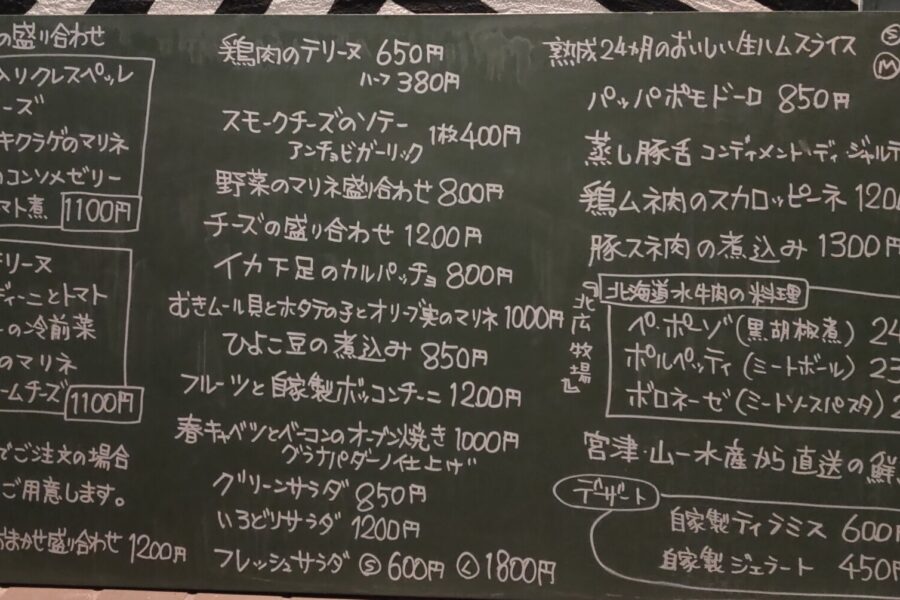 の盛り合わせ
入りクレスペッレ
ーズ
キクラゲのマリネ
のコンソメゼリー
マト煮 1100円
テリーヌ
ディーニとトマト
ーの冷前菜
のマリネ
ームチーズ 1100円
でご注文の場合
ご用意します。
おまかせ盛り合わせ 1200円
鶏肉のテリーヌ 650円
ハーフ 380円
スモークチーズのソテー 1枚400円
アンチョビガーリック
野菜のマリネ盛り合わせ 800円
チーズの盛り合わせ 1200円
イカ下足のカルパッチョ 800円
むきムール貝とホタテの子とオリーブ実のマリネ 1000円
ひよこ豆の煮込み 850円
フルーツと自家製ボッコンチーニ 1200円
春キャベツとベーコンのオーブン焼き 1000円
グラナパダーノ仕上げ
グリーンサラダ 850円
いろどりサラダ 1200円
フレッシュサラダ Ⓢ600円 Ⓛ1800円
熟成24カ月のおいしい生ハムスライス Ⓢ
Ⓜ
パッパポモドーロ 850円
蒸し豚舌 コンディメント・ディ・ジャルデ
鶏ムネ肉のスカロッピーネ 120
豚スネ肉の煮込み 1300円
『北広牧場』
北海道水牛肉の料理
ペポーゾ(黒胡椒煮) 24
ポルペッティ(ミートボール) 23
ボロネーゼ(ミートソースパスタ)
宮津・山一水産から直送の鮮
デザート
自家製ティラミス 600円
自家製ジェラート 450円